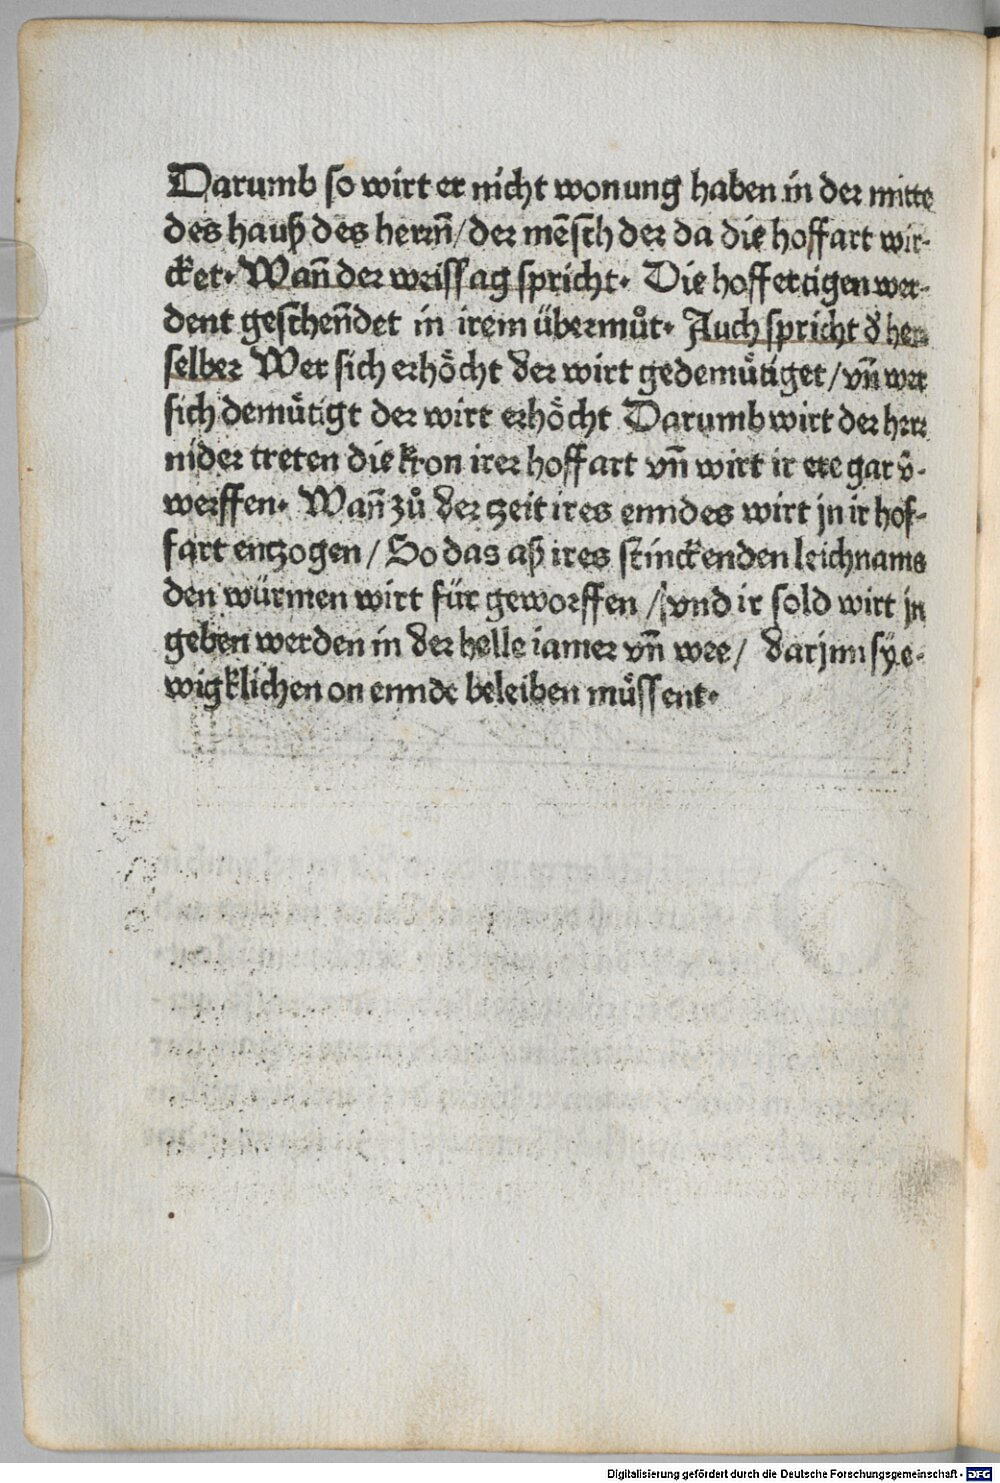 Darumb so wirt er nicht wonung haben in der mitte
des hauß des herrn̄/ der mēsch der da die hoffart wir-
cket. Wan̄ der weissag spricht. Die hoffertigen wer-
dent geschen̄det in irem übermůt. Auch spricht d' herr
selber Wer sich erhöcht der wirt gedemütiget/ vn̄ wer
sich demütigt der wirt erhöcht Darumb wirt der herr
nider treten die kron irer hoffart vn̄ wirt ir ere gar v̄-
werffen. Wan̄ zů der zeit ires enndes wirt jn ir hof-
fart entzogen/ So das aß ires stinckenden leichnams
den würmen wirt für geworffen/ vnd ir sold wirt jn
geben werden in der helle iamer vn̄ wee/ darjnn sy e-
wigklichen on ennde beleiben müssent.
Digitalisierung gefördert durch die Deutsche Forschungsgemeinschaft - DFG